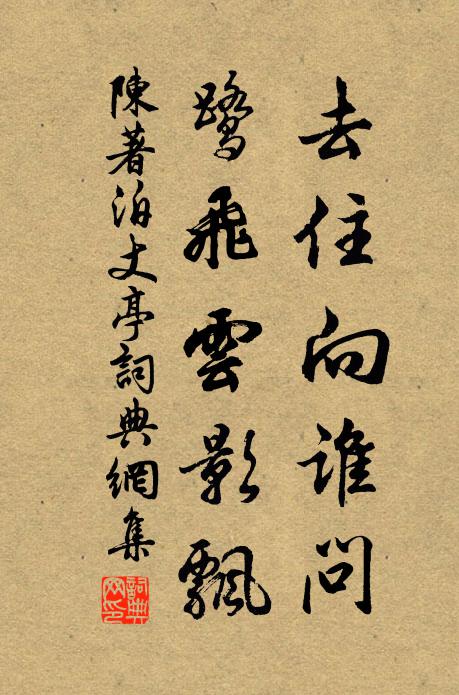 去住向誰問
鷺飛雲影飄
陳著泊丈亭詞典網集
詞典网印